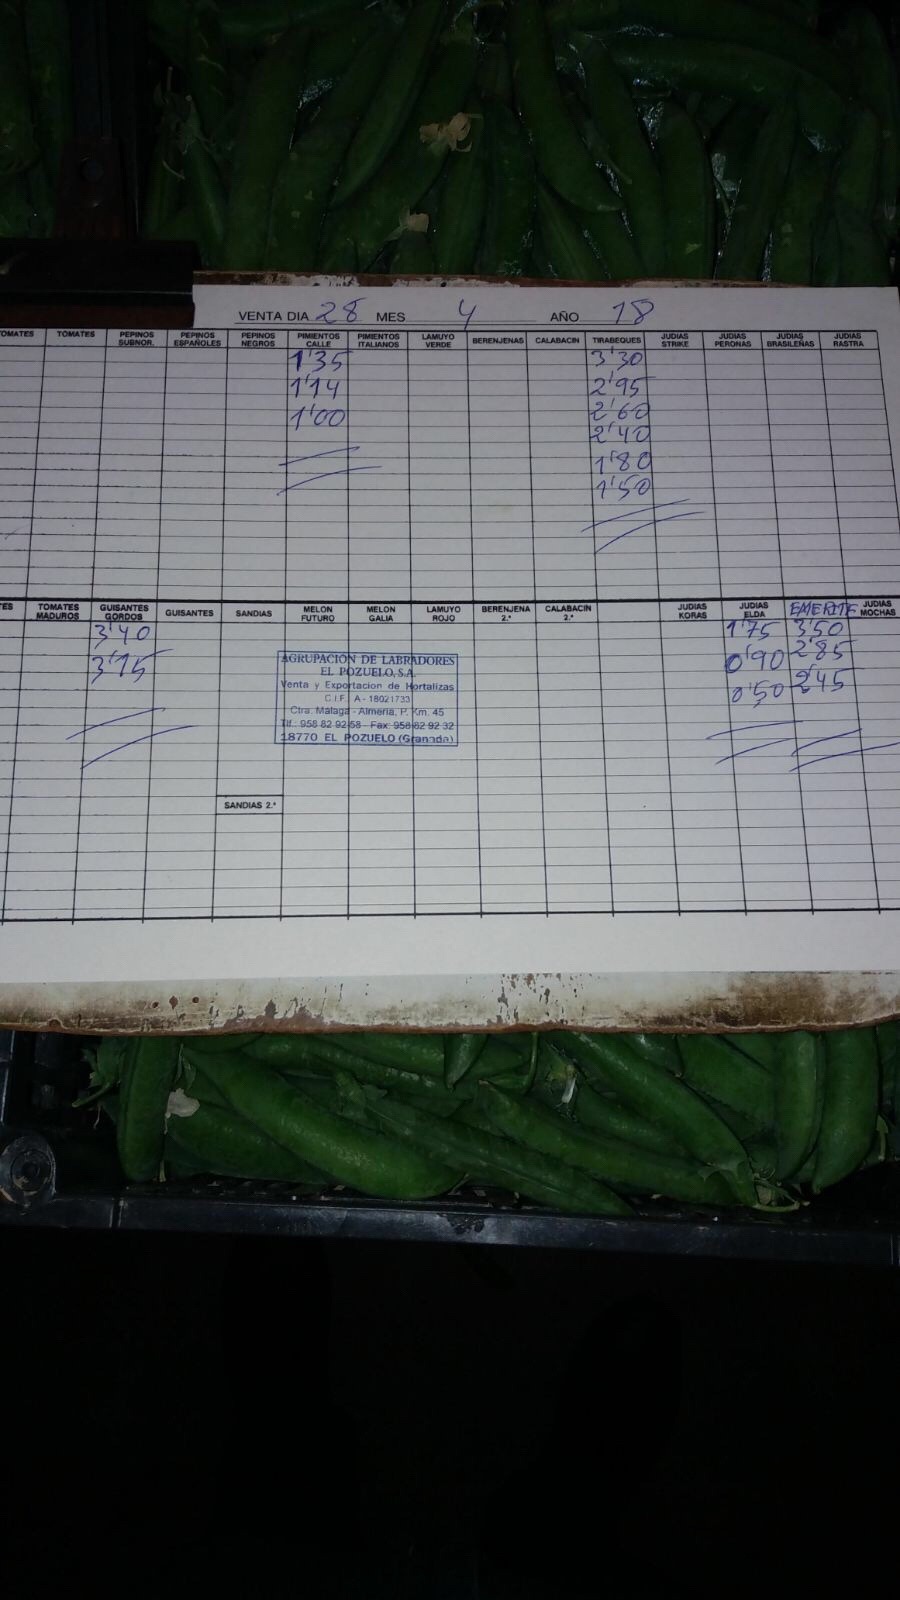 VENTA DIA 28 MES 4 AÑO 18
TOMATES TOMATES PEPINOS SUBNOR. PEPINOS ESPAÑOLES PEPINOS NEGROS PIMIENTOS CALLE PIMIENTOS ITALIANOS LAMUYO VERDE BERENJENAS CALABACIN TIRABEQUES JUDIAS STRIKE JUDIAS PERONAS JUDIAS BRASILEÑAS JUDIAS RASTRA
1'35 3'30
1'14 2'95
1'00 2'60
2'40
1'80
1'50
TES TOMATES MADUROS GUISANTES GORDOS GUISANTES SANDIAS MELON FUTURO MELON GALIA LAMUYO ROJO BERENJENA 2.ª CALABACIN 2.ª JUDIAS KORAS JUDIAS ELDA EMERITE JUDIAS MOCHAS
3'40 1'75 3'50
3'15 0'90 2'85
0'50 2'45
AGRUPACION DE LABRADORES
EL POZUELO, S.A.
Venta y Exportacion de Hortalizas
C.I.F. A - 18021733
Ctra. Málaga - Almeria, P. Km. 45
Tlf.: 958 82 92 58 - Fax: 958 82 92 32
18770 EL POZUELO (Granada)
SANDIAS 2.ª